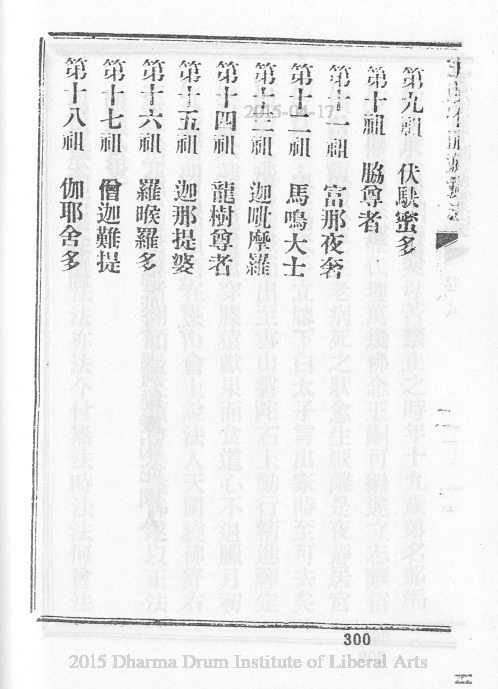 第九祖　伏䭾蜜多
第十祖　脇尊者
第十一祖　富那夜奢
第十二祖　馬鳴大士
第十三祖　迦毗摩羅
第十四祖　龍樹尊者
第十五祖　迦那提婆
第十六祖　羅睺羅多
第十七祖　僧迦難提
第十八祖　伽耶舍多
300
2015-04-17
2015 Dharma Drum Institute of Liberal Arts